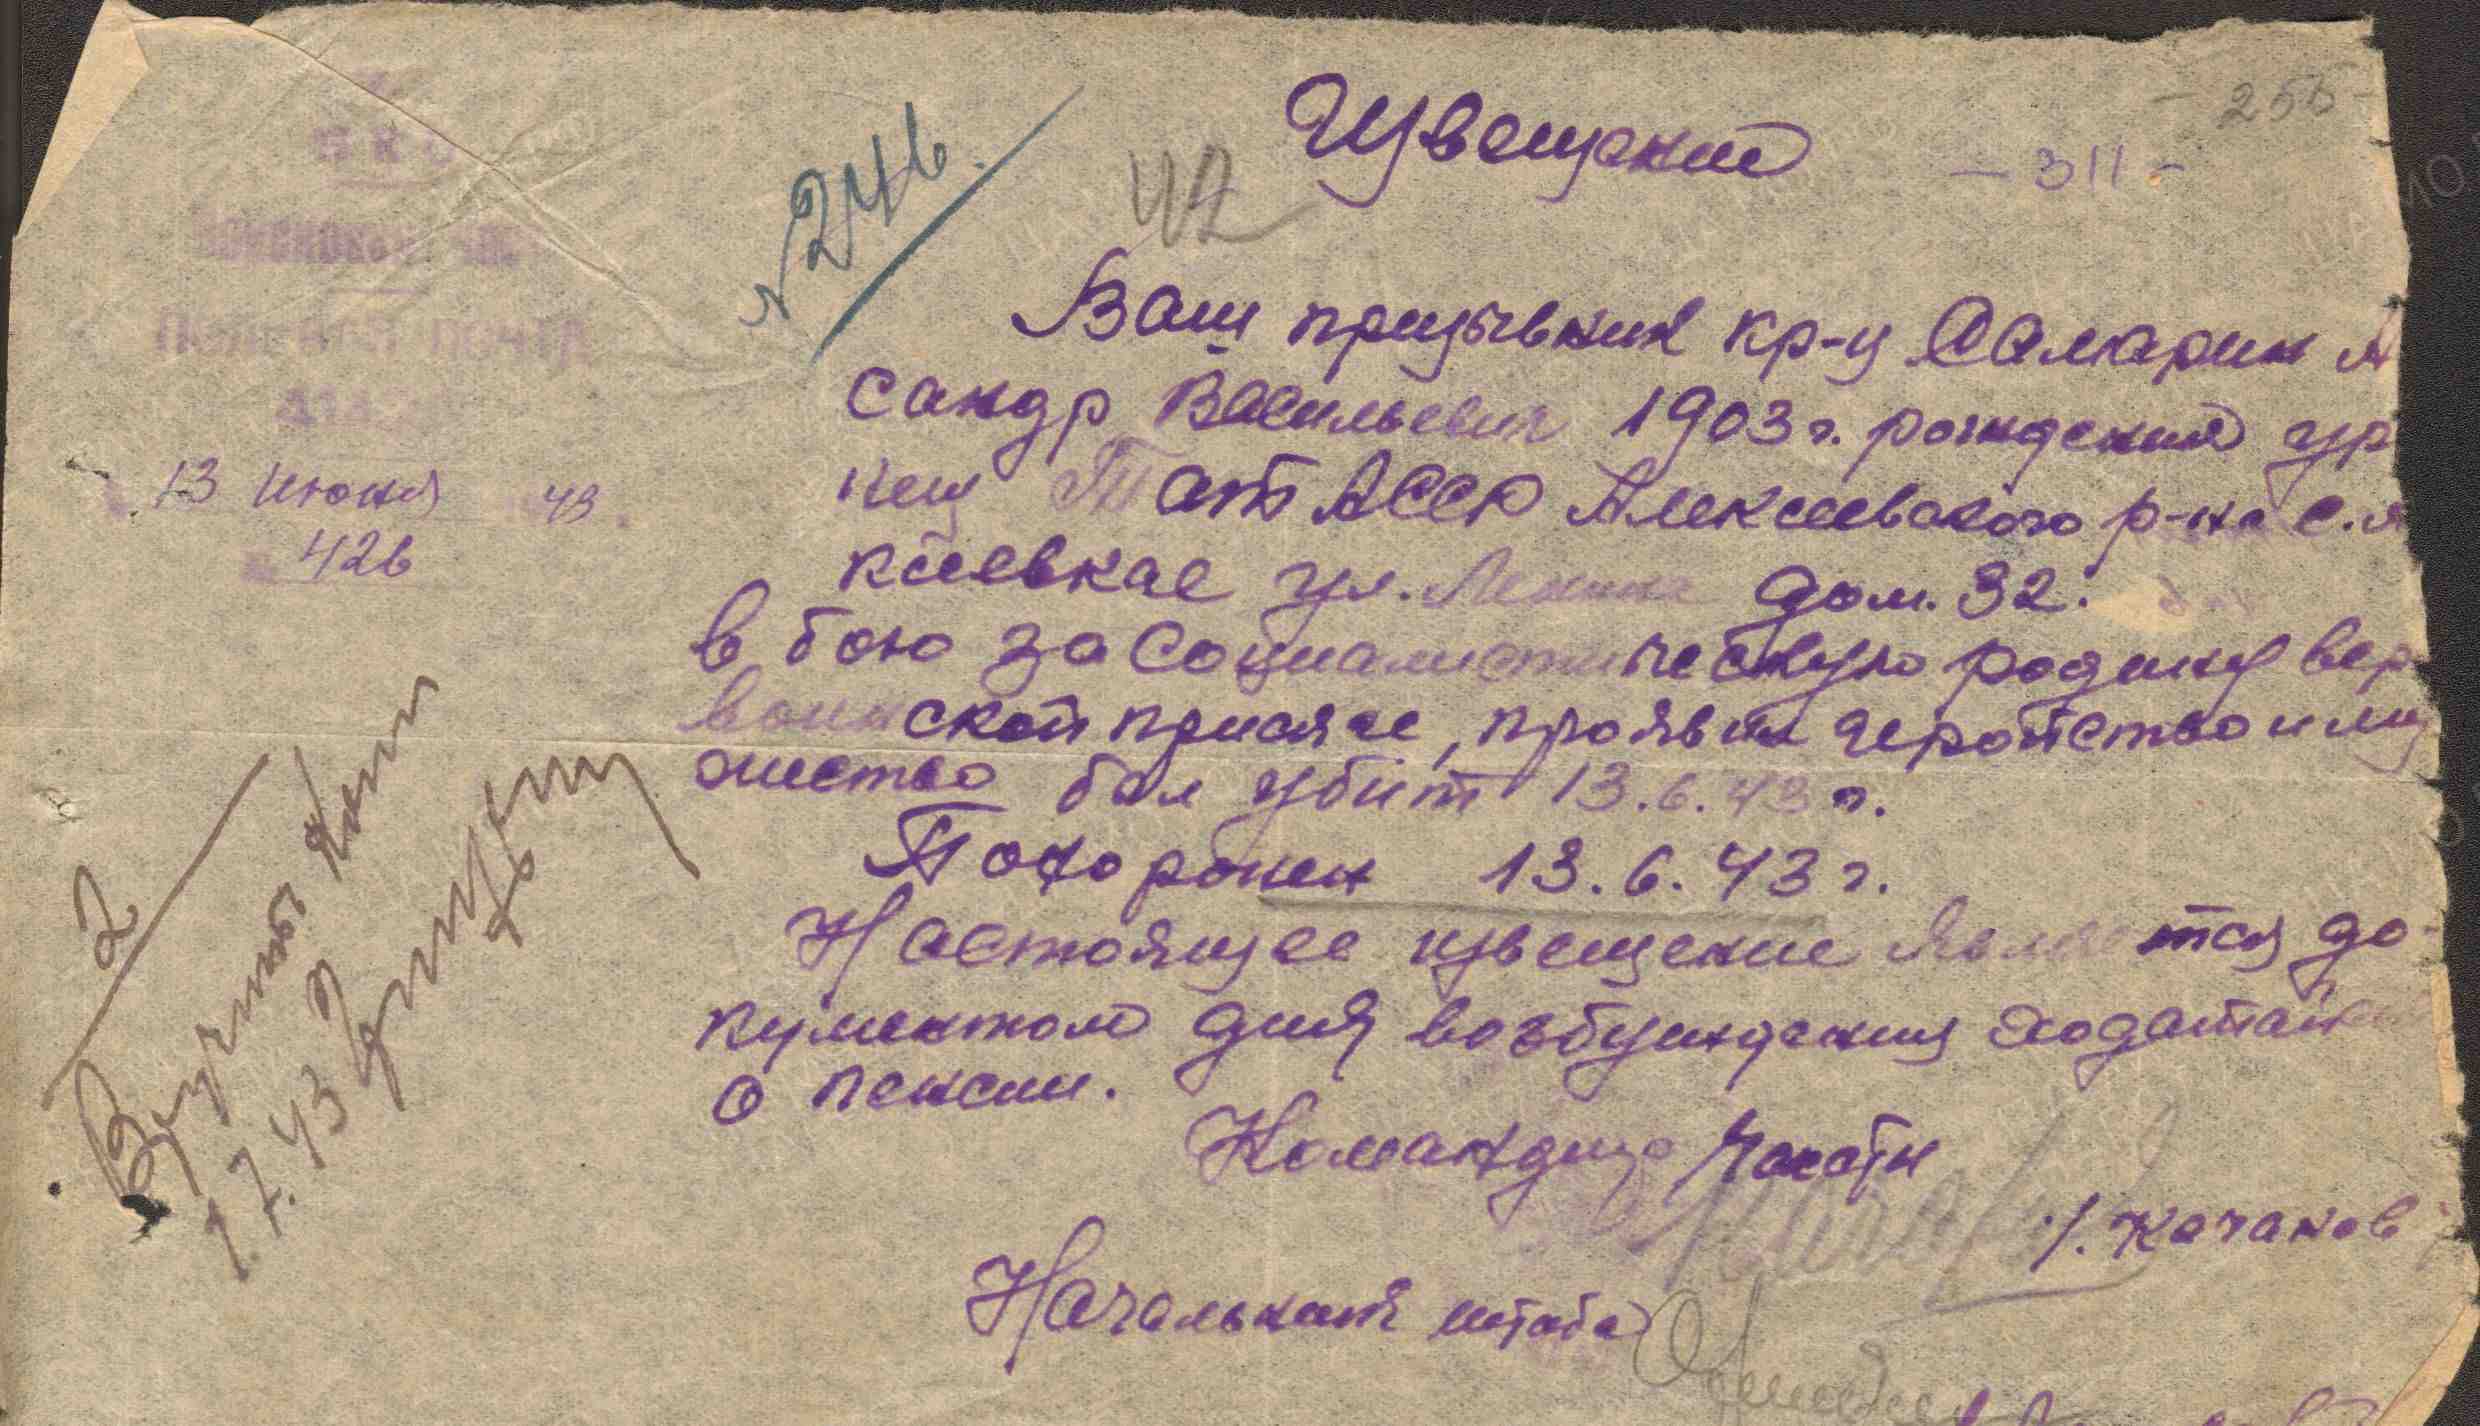 Извещение
- 255 -
- 311 -
№ 246.
42
НКО
Полевая почта
13 июня 43
426
Ваш призывник кр-ц Самарин А
сандр Васильевич 1903 г. рождения ур
нец Тат АССР Алексеевского р-на с. А
ксеевкае ул. Ленина дом. 32.
в бою за социалистическую родину вер
воинской присяге, проявил геройство и му
жество был убит 13.6.43 г.
Похоронен 13.6.43 г.
Настоящее извещение является до-
кументом для возбуждения ходатайств
о пенсии.
Командир части
/. Качанов
Начальник штаба
2
Вручить
1.7.43